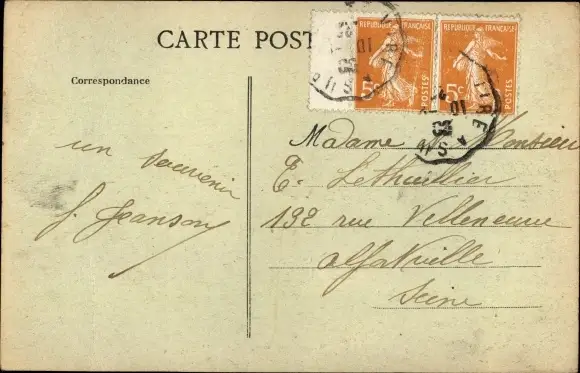 CARTE POST
Correspondance
REPUBLIQUE FRANÇAISE
5c POSTES
REPUBLIQUE FRANÇAISE
5c POSTES
un souvenir
J. Jeanson
Madame Monsieur
E. Lethuillier
132 rue Villeneuve
alfortville
Seine